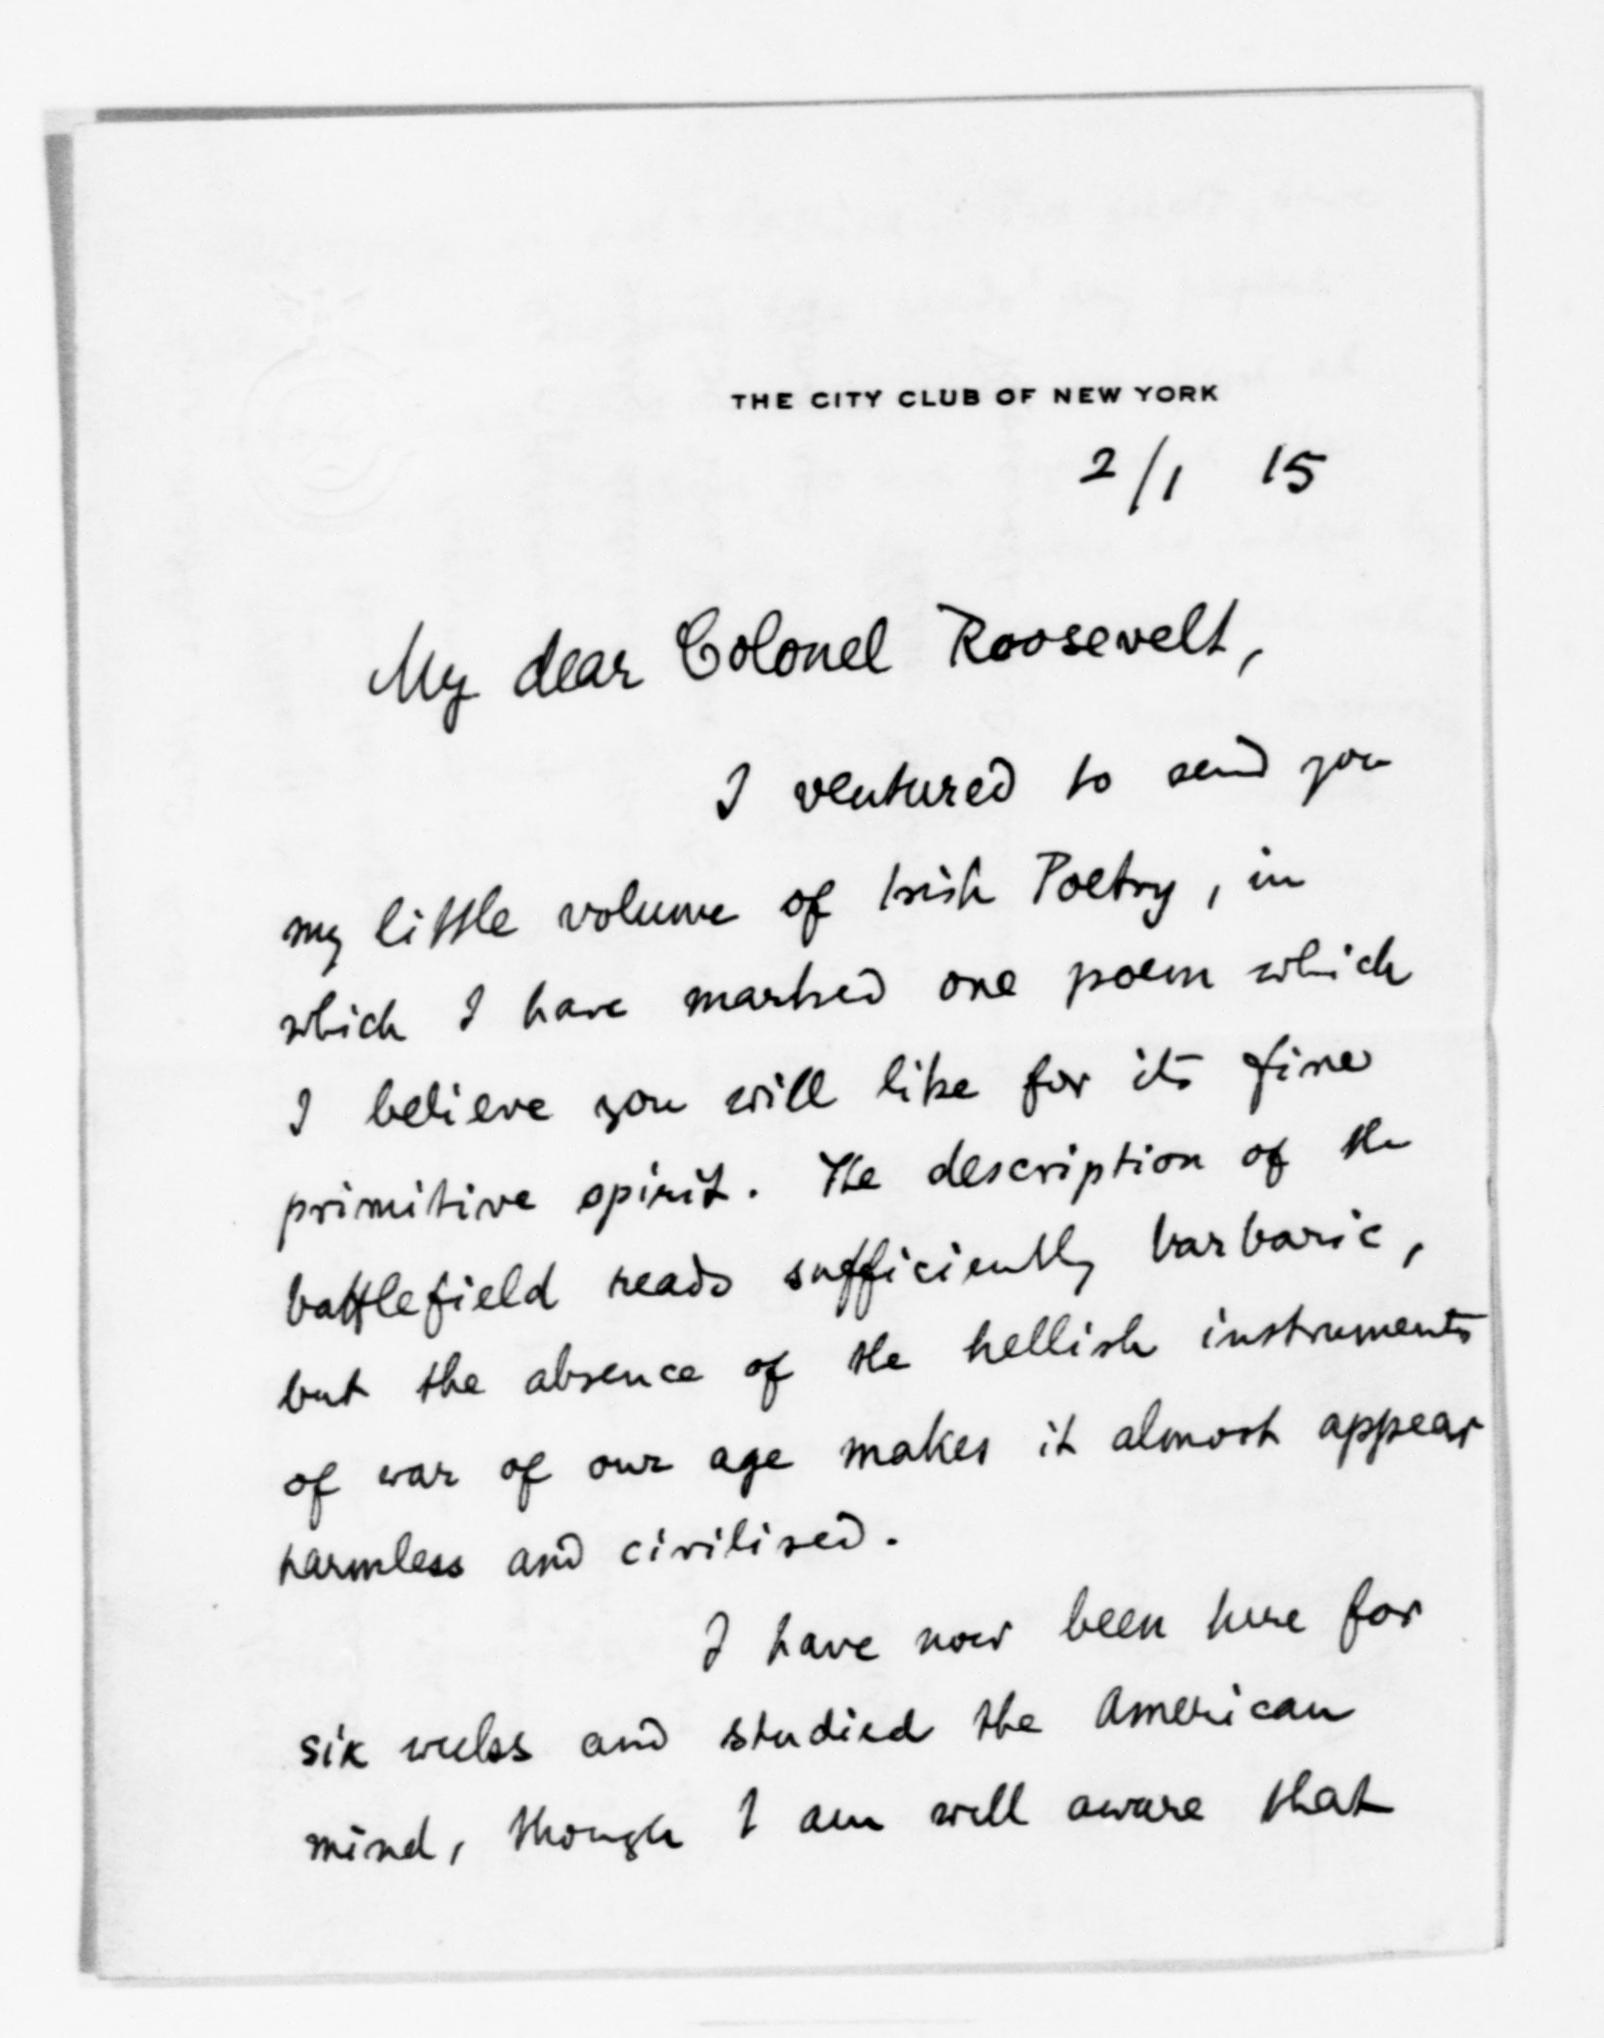 THE CITY CLUB OF NEW YORK
2/1 15
My dear Colonel Roosevelt,
I ventured to send you
my little volume of Irish Poetry, in
which I have marked one poem which
I believe you will like for its fine
primitive spirit. The description of the
battlefield reads sufficiently barbaric,
but the absence of the hellish instruments
of war of our age makes it almost appear
harmless and civilised.
I have now been here for
six weeks and studied the American
mind, though I am well aware that